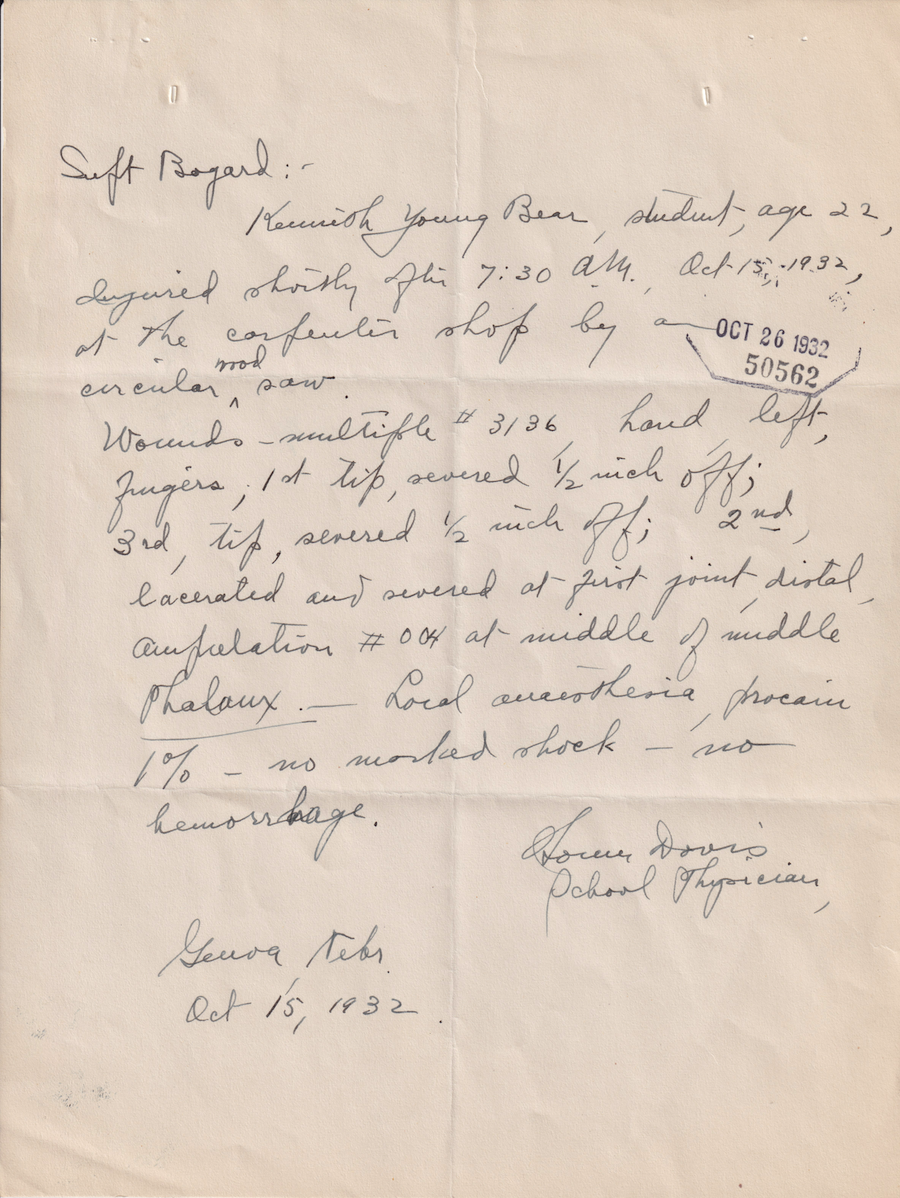 Supt Bogard:-
Kennith Young Bear, student, age 22,
Injured shortly after 7:30 A.M., Oct 15, 1932,
at the carpenter shop by a
OCT 26 1932
50562
circular wood saw
Wounds - multiple # 3136, hand, left,
fingers, 1st tip, severed 1/2 inch off;
3rd, tip, severed 1/2 inch off; 2nd,
lacerated and severed at first joint, distal,
amputation # 004 at middle of middle
Phalanx. — Local anaesthesia, procain
1% - no marked shock - no
hemorrhage.
Homer Davis
School Physician,
Genoa, Nebr.
Oct 15, 1932.